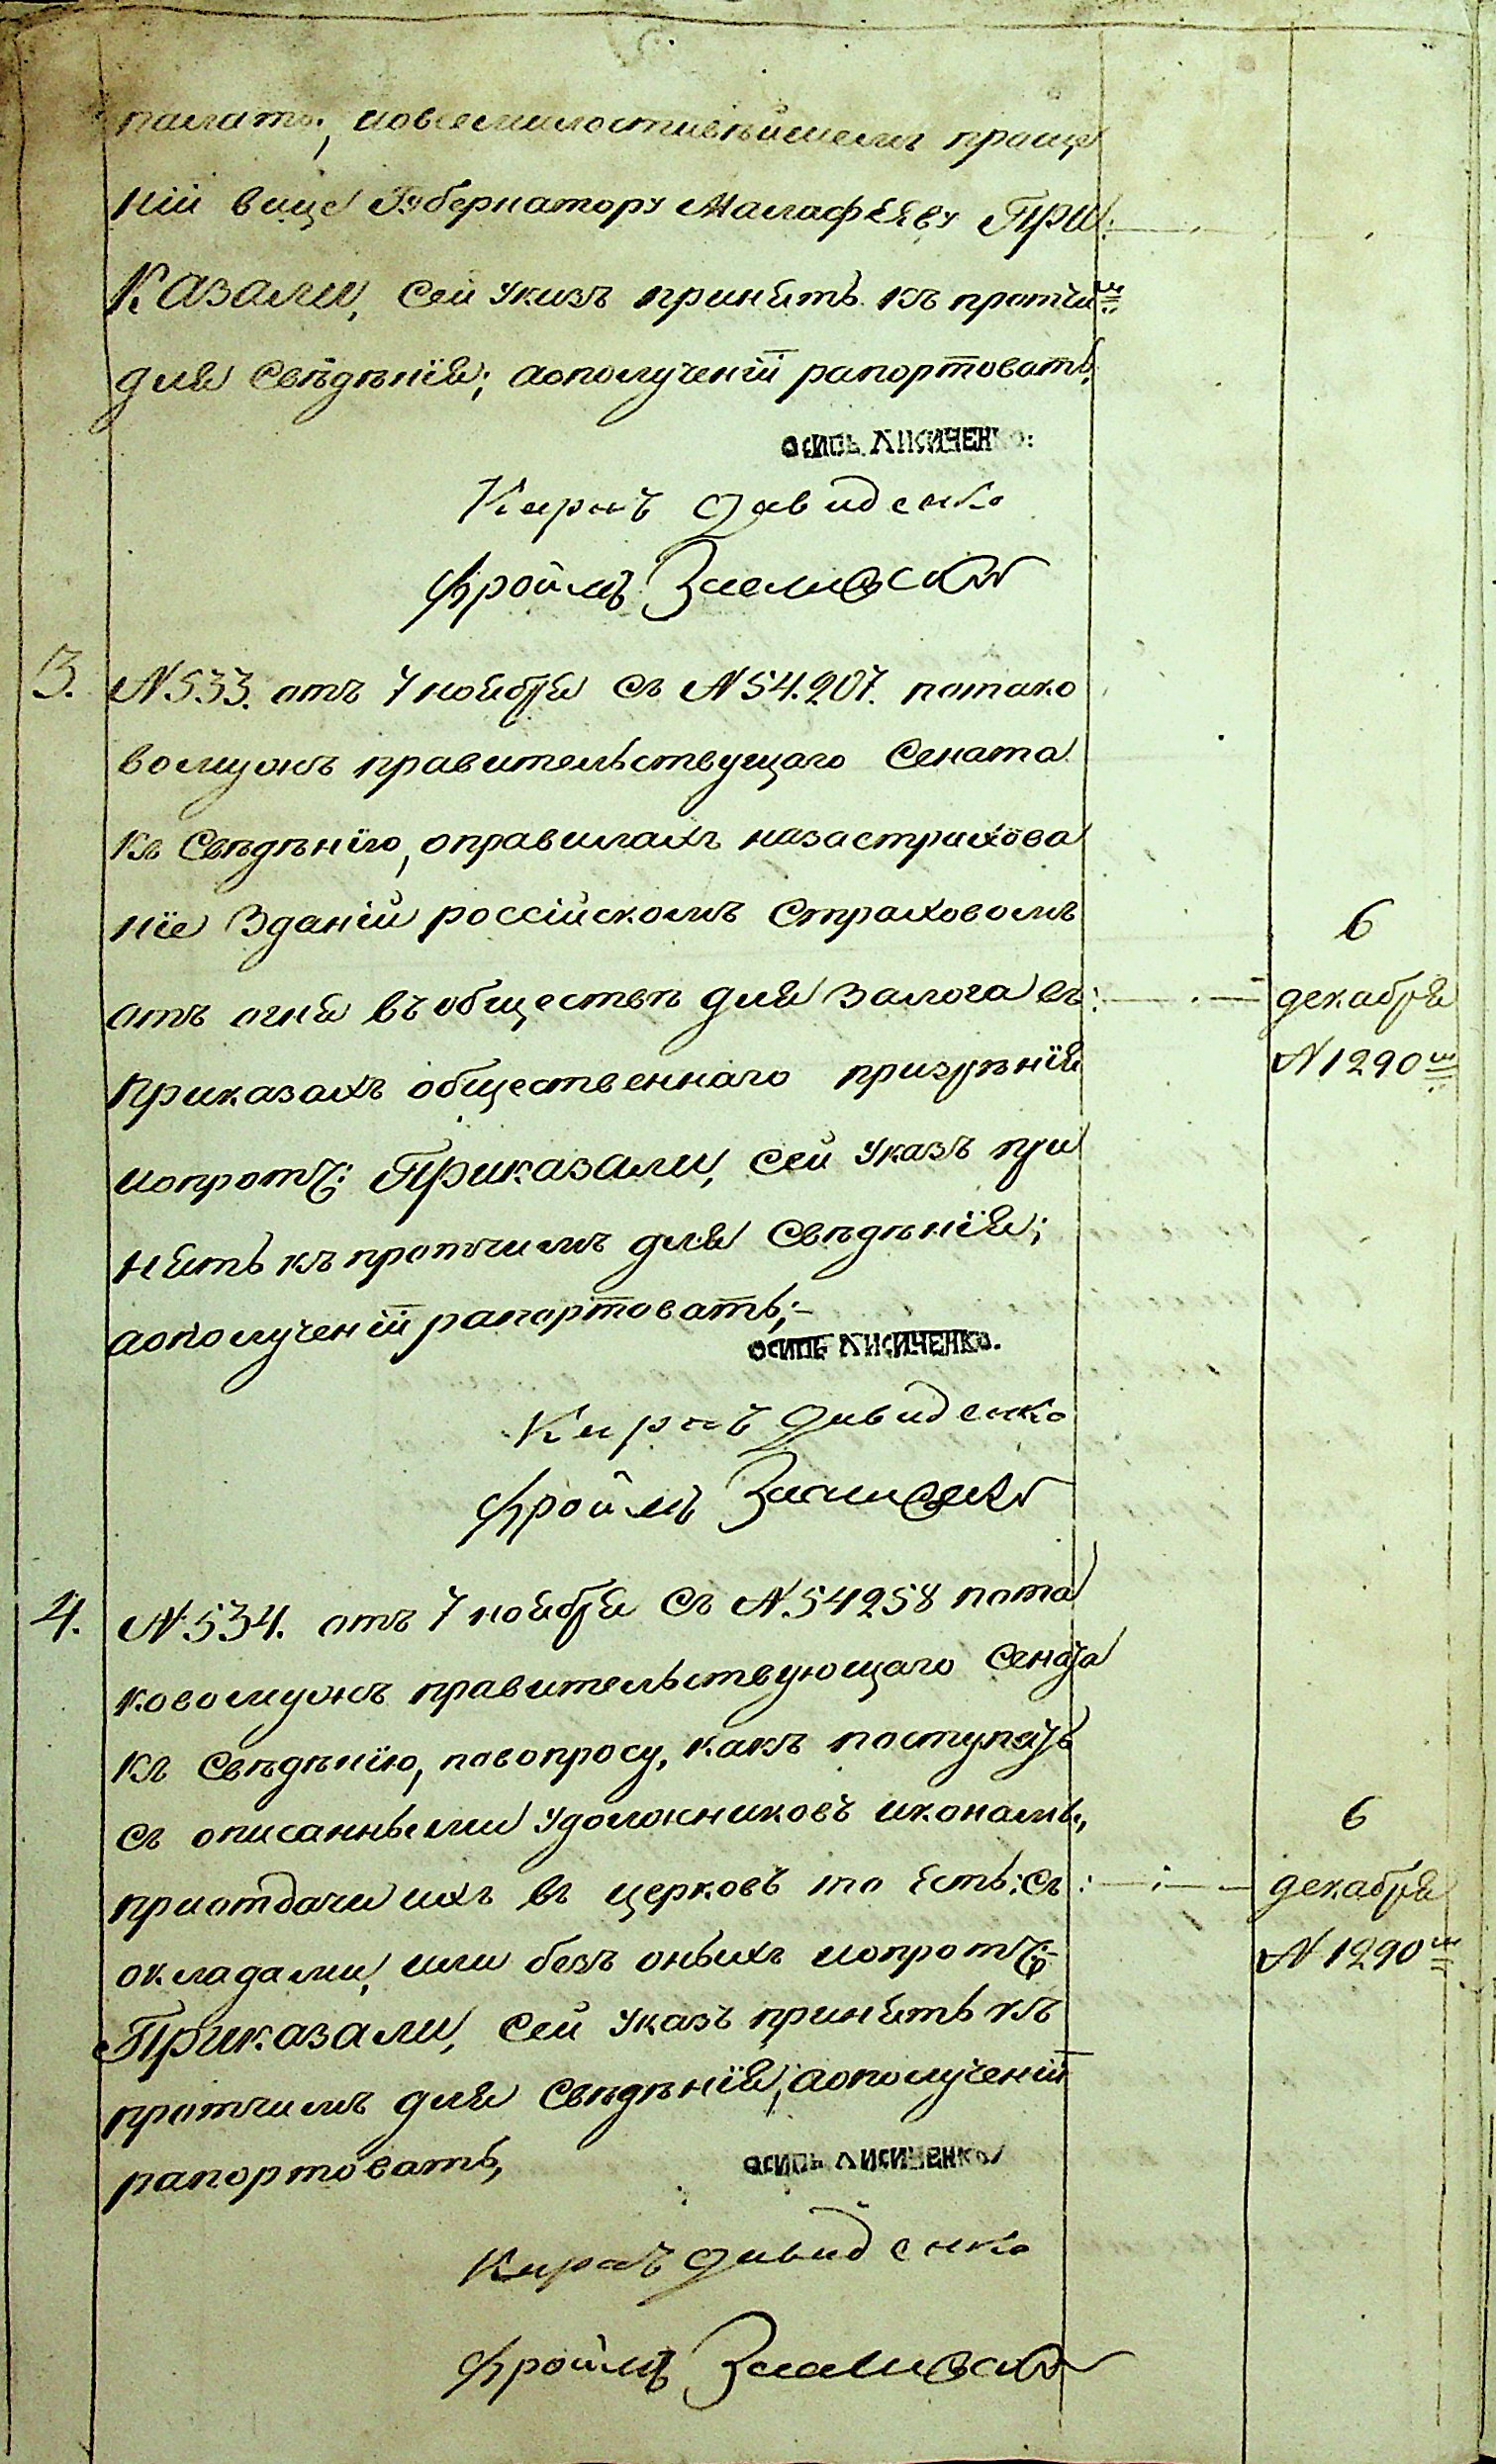 палаты, иовсемилостивѣйшемъ проще
ніи вице Губернатору Малафѣеву При
Казали, сей указъ принять къ протчи^м
для свѣдѣнія; аополученіи рапортовать,
осипъ лисиченко:
Кирилъ Давиденко
Фроимъ
3. N533. отъ 7 ноября съ N54.207. потако
вомужъ правительствущаго Сената
къ свѣдѣнію, оправилахъ назастрахова
ніе зданій россійскомъ страховомъ
отъ огня въобществѣ для залога въ:
приказахъ общественнаго призрѣнія
ипротч: Приказали, сей указъ при
нять къпротчимъ для свѣдѣнія;
аополученіи рапортовать;-
6
декабря
N1290^м
осипъ лисиченко.
Кирилъ Давиденко
Фроимъ
4. N534. отъ 7 ноября съ N54258 пота
ковомужъ правительствующаго Сената
къ свѣдѣнію, повопросу, какъ поступать
съ описанными удолжниковъ иконамы,
приотдачи ихъ въ церковь то есть: съ:
окладами, или безъ оныхъ ипротч:-
Приказали, сей указъ принять къ
протчимъ для свѣдѣнія, аополученіи
рапортовать,
6
декабря
N1290^м
осипъ лисиченко
Кирилъ Давиденко
Фроимъ